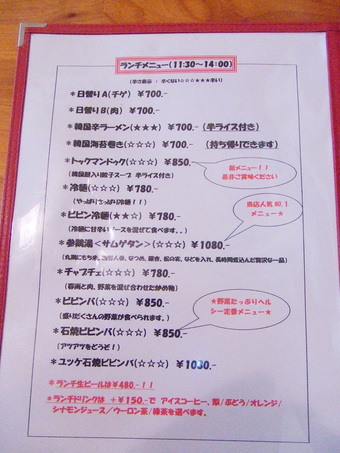 ランチメニュー(11:30～14:00)
(辛さ表示 : 辛くない☆☆☆★★★辛い)
＊日替りA(チゲ) ￥700.-
＊日替りB(肉) ￥700.-
＊韓国辛ラーメン(★★★) ￥700.- (半ライス付き)
＊韓国海苔巻き(☆☆☆) ￥700.- (持ち帰りできます)
＊トックマンドゥク(☆☆☆) ￥850.-
(韓国餅入り餃子スープ 半ライス付き)
新メニュー！！
是非ご賞味ください
＊冷麺(☆☆☆) ￥780.-
(やっぱりさっぱり冷麺！)
＊ビビン冷麺(★★☆) ￥780.-
(冷麺に甘辛いソースを混ぜて食べます。)
当店人気NO.1
メニュー★
＊参鶏湯＜サムゲタン＞(☆☆☆) ￥1080.-
(丸鶏にもち米、高麗人参、なつめ、松の実、などを入れ、長時間煮込んだ贅沢な一品)
＊チャプチェ(☆☆☆) ￥780.-
(春雨と肉、野菜を混ぜ合わせた炒め物)
＊ビビンバ(☆☆☆) ￥850.-
(盛りだくさんの野菜が食べられます。)
★野菜たっぷりヘル
シー定番メニュー★
＊石焼ビビンバ(☆☆☆) ￥850.-
(アツアツをどうぞ！)
＊ユッケ石焼ビビンバ(☆☆☆) ￥1030.-
＊ランチ生ビールは￥480.-！！
＊ランチドリンクは ＋￥150.-で アイスコーヒー、梨/ぶどう/オレンジ/
シナモンジュース/ウーロン茶/緑茶を選べます。